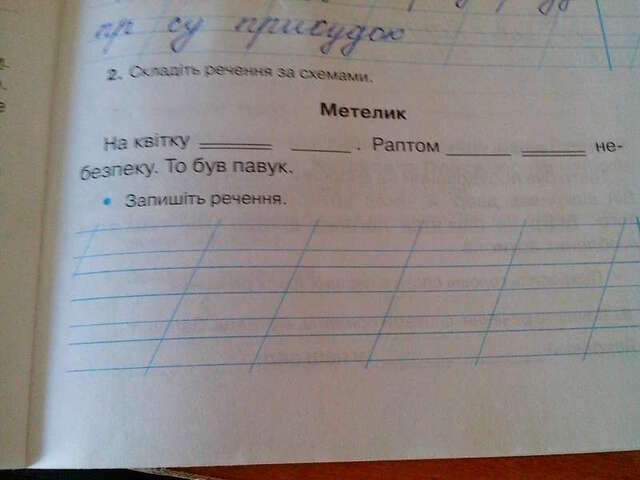 пр су присудок
2. Складіть речення за схемами.
Метелик
На квітку ______ ______. Раптом ______ ______ не-
безпеку. То був павук.
• Запишіть речення.